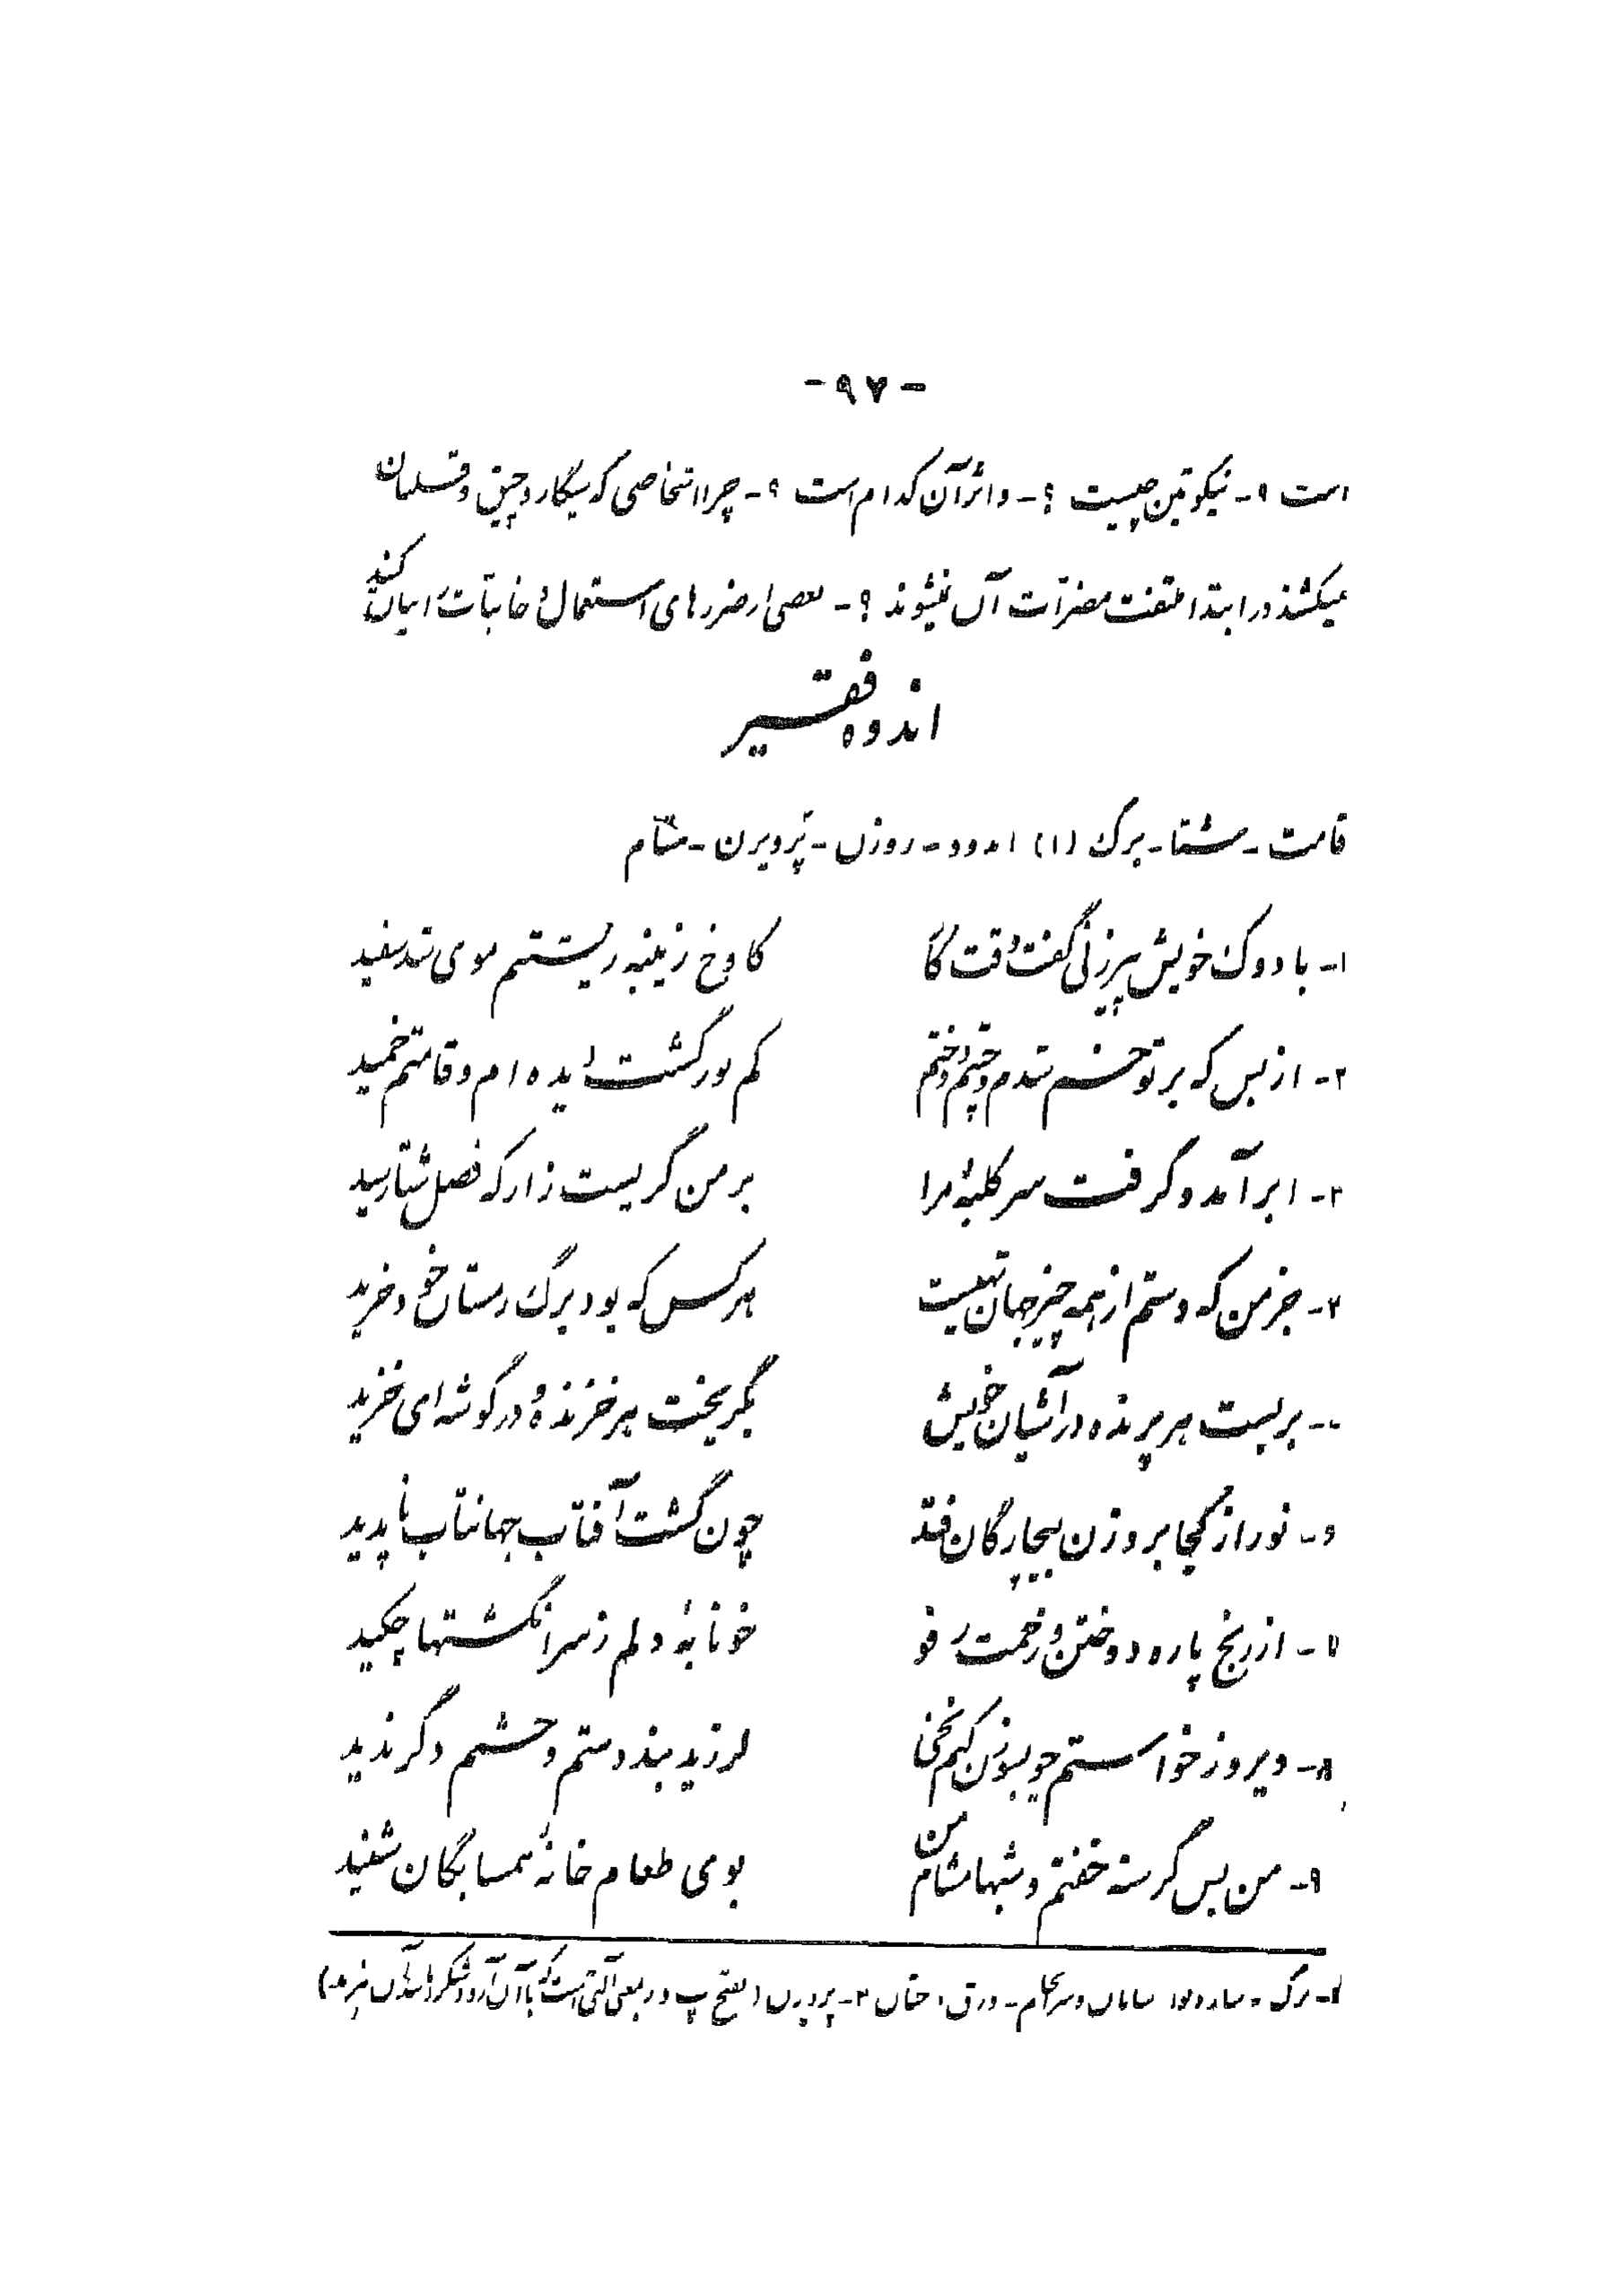 - ۹۷ -
است ؟ - نیکوتین چیست ؟ - و اثر آن کدام است ؟ - چرا اشخاصی که سیگار و چپق و قلیان
میکشند در ابتدا ملتفت مضرات آن نمیشوند ؟ - بعضی از ضررهای استعمال دخانیات را بیان کنید
اندوه فقیر
قامت - شتا - برگ (۱) اندوه - روزن - پرویزن - مشام
۱- با دوک خویش پیرزنی گفت وقت کار کاوخ ز پنبه ریشتنم موی شد سفید
۲- از بس که بر تو خم شدم و چشم دوختم کم نور گشت دیده ام و قامتم خمید
۳- ابر آمد و گرفت سر کلبهٔ مرا بر من گریست زار که فصل شتا رسید
۴- جز من که دستم از همه چیز جهان تهیست هر کس که بود برگ زمستان خود خرید
- بربست هر پرنده در آشیان خویش بگریخت هر خزنده و در گوشه ای خزید
و- نور از کجا بروزن بیچارگان فتد چون گشت آفتاب جهانتاب ناپدید
۷- از رنج پاره دوختن و زحمت رفو خونابهٔ دلم ز سر انگشتها چکید
۸- دیروز خواستم چو بسوزن کنم نخی لرزید بند دستم و چشمم دگر ندید
۹- من بس گرسنه خفتم و شبها مشام من بوی طعام خانهٔ همسایگان شنید
۱- برگ - سامان و سرانجام - ورق درختان ۲- پرویزن بفتح پ و ر بمعنی آلتی است که با آن آرد و شکر و امثال آن بیزند)